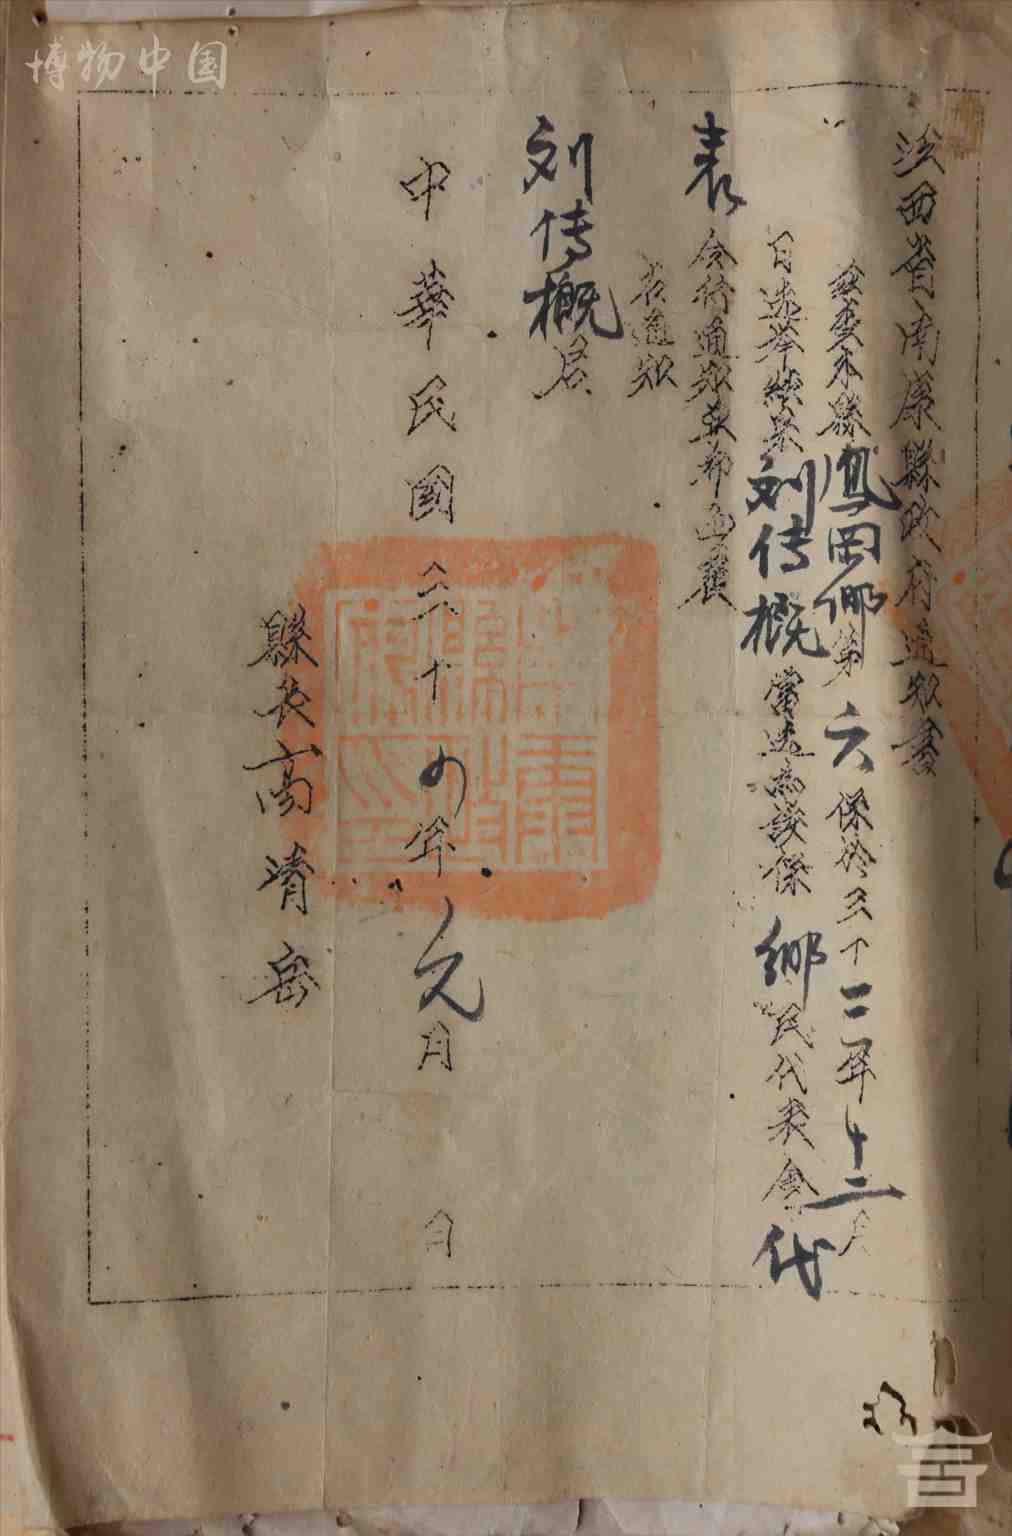 博物中国
江西省南康縣政府通知書
茲查本縣鳳岡鄉第六保於三十三年十二月
日选举結果刘传概當选為該保鄉民代表會代
表令行通知並希查覆
右通知
刘传概君
中華民國三十四年元月 日
縣長高清岳